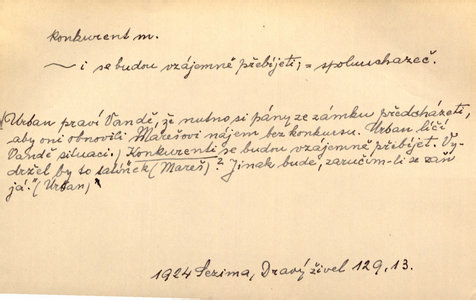 konkurent m.
~ i se budou vzájemně přebíjeti, = spoluucházeč.
(Urban praví Vandě, že nutno si pány ze zámku předcházeti,
aby oni obnovili Marešovi nájem bez konkursu. Urban líčí
Vandě situaci.) Konkurenti se budou vzájemně přebíjet. Vy-
držel by to satinek (Mareš)? Jinak bude, zaručím-li se zaň
já." (Urban)
1924 Sezima, Dravý živel 129, 13.